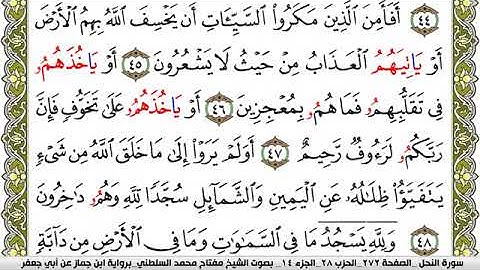 ٤٤ أَفَأَمِنَ ٱلَّذِينَ مَكَرُواْ ٱلسَّيِّـَٔاتِ أَن يَخۡسِفَ ٱللَّهُ بِهِمُۥ ٱلۡأَرۡضَ
أَوۡ يَاتِيَهُمُ ٱلۡعَذَابُ مِنۡ حَيۡثُ لَا يَشۡعُرُونَ ٤٥ أَوۡ يَاخُذَهُمُۥ
فِي تَقَلُّبِهِمُۥ فَمَا هُمُۥ بِمُعۡجِزِينَ ٤٦ أَوۡ يَاخُذَهُمُۥ عَلَىٰ تَخَوُّفٖ فَإِنَّ
رَبَّكُمُۥ لَرَءُوفٞ رَّحِيمٌ ٤٧ أَوَلَمۡ يَرَوۡاْ إِلَىٰ مَا خَلَقَ ٱللَّهُ مِن شَيۡءٖ
يَتَفَيَّؤُاْ ظِلَٰلُهُۥ عَنِ ٱلۡيَمِينِ وَٱلشَّمَآئِلِ سُجَّدٗا لِّلَّهِ وَهُمُۥ دَٰخِرُونَ
٤٨ وَلِلَّهِ يَسۡجُدُۤ مَا فِي ٱلسَّمَٰوَٰتِ وَمَا فِي ٱلۡأَرۡضِ مِن دَآبَّةٖ
سورة النحل _الصفحة ٢٧٢ _الحزب ٢٨ _الجزء ١٤ _ بصوت الشيخ مفتاح محمد السلطني _برواية ابن جماز عن أبي جعفر